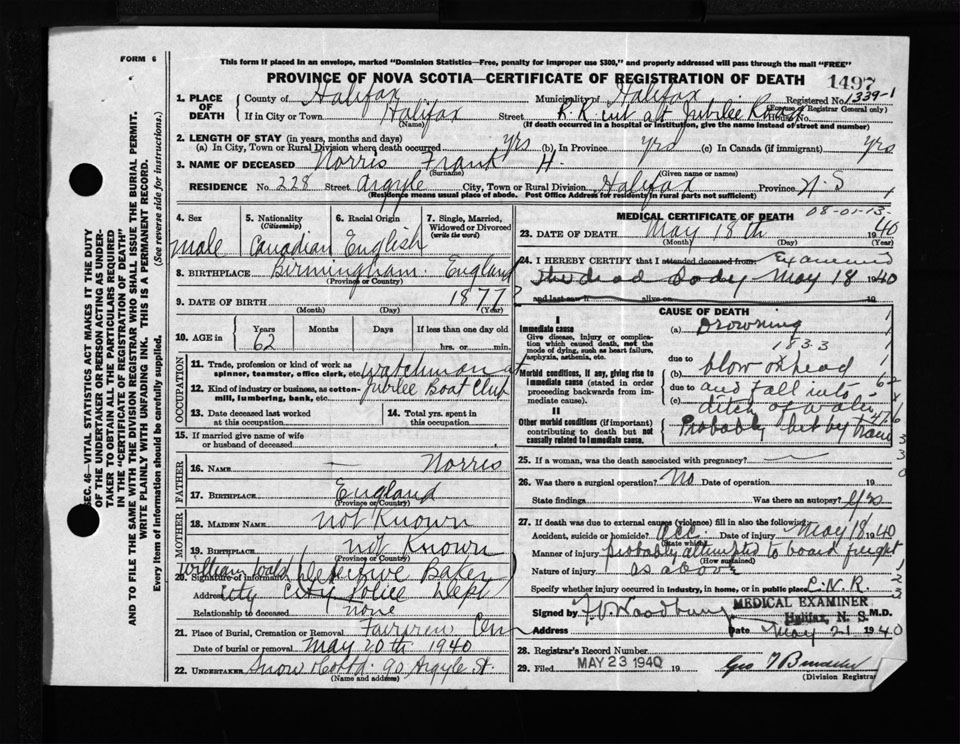 FORM 6
This form if placed in an envelope, marked "Dominion Statistics—Free, penalty for improper use $300," and properly addressed will pass through the mail "FREE"
PROVINCE OF NOVA SCOTIA—CERTIFICATE OF REGISTRATION OF DEATH
1497
1. PLACE OF DEATH County of Halifax Municipality of Halifax Registered No. 1339-1
(For use of Registrar General only)
If in City or Town Halifax Street R.R. cut at Jubilee Road
(Name) (If death occurred in a hospital or institution, give the name instead of street and number)
2. LENGTH OF STAY (in years, months and days)
(a) In City, Town or Rural Division where death occurred yrs (b). In Province yrs (c) In Canada (if immigrant) yrs
3. NAME OF DECEASED Norris Frank H.
(Surname) (Given name or names)
RESIDENCE No. 228 Street Argyle City, Town or Rural Division Halifax Province N.S.
(Residence means usual place of abode. Post Office Address for residents in rural parts not sufficient)
4. Sex
male
5. Nationality (Citizenship)
Canadian
6. Racial Origin
English
7. Single, Married, Widowed or Divorced (write the word)
8. BIRTHPLACE Birmingham England
(Province or Country)
9. DATE OF BIRTH 1877
(Month) (Day) (Year)
10. AGE in Years Months Days If less than one day old
62 hrs. or min.
OCCUPATION
11. Trade, profession or kind of work as spinner, teamster, office clerk, etc. Watchman at
12. Kind of industry or business, as cotton-mill, lumbering, bank, etc. Jubilee Boat Club
13. Date deceased last worked at this occupation
14. Total yrs. spent in this occupation
15. If married give name of wife or husband of deceased
FATHER
16. NAME — Norris
17. BIRTHPLACE England
(Province or Country)
MOTHER
18. MAIDEN NAME not Known
19. BIRTHPLACE not Known
(Province or Country)
20. Signature of informant William Wald Detective Baker
Address City City Police Dept
Relationship to deceased none
21. Place of Burial, Cremation or Removal Fairview Cem
Date of burial or removal May 20th 1940
22. UNDERTAKER Snow & Co Ltd. 90 Argyle St.
(Name and address)
MEDICAL CERTIFICATE OF DEATH
08-01-13-
23. DATE OF DEATH May 18th 1940
(Month) (Day) (Year)
24. I HEREBY CERTIFY that I attended deceased from Examined
the dead body May 18 1940
and last saw h alive on 19
CAUSE OF DEATH
I
Immediate cause
Give disease, injury or complication which caused death, not the mode of dying, such as heart failure, asphyxia, asthenia, etc.
(a) Drowning
183.3
due to
Morbid conditions, if any, giving rise to immediate cause (stated in order proceeding backwards from immediate cause).
(b) blow on head
due to
(c) and fall into
ditch of water
II
Other morbid conditions (if important) contributing to death but not causally related to immediate cause.
Probably hit by train
25. If a woman, was the death associated with pregnancy? —
26. Was there a surgical operation? No Date of operation 19
State findings Was there an autopsy? yes
27. If death was due to external causes (violence) fill in also the following:
Accident, suicide or homicide? Acc. Date of injury May 18 1940
(State which)
Manner of injury probably attempted to board freight
(How sustained)
Nature of injury as above
Specify whether injury occurred in industry, in home, or in public place C.N.R.
Signed by F.V. Woodbury M.D.
MEDICAL EXAMINER
Halifax, N. S.
Address Date May 21 1940
28. Registrar's Record Number
29. Filed MAY 23 1940 19
(Division Registrar)
SEC. 46—VITAL STATISTICS ACT MAKES IT THE DUTY OF THE UNDERTAKER OR PERSON ACTING AS UNDERTAKER TO OBTAIN ALL THE PARTICULARS REQUIRED IN THE "CERTIFICATE OF REGISTRATION OF DEATH" AND TO FILE THE SAME WITH THE DIVISION REGISTRAR WHO SHALL ISSUE THE BURIAL PERMIT.
WRITE PLAINLY WITH UNFADING INK. THIS IS A PERMANENT RECORD.
Every item of information should be carefully supplied. (See reverse side for instructions.)